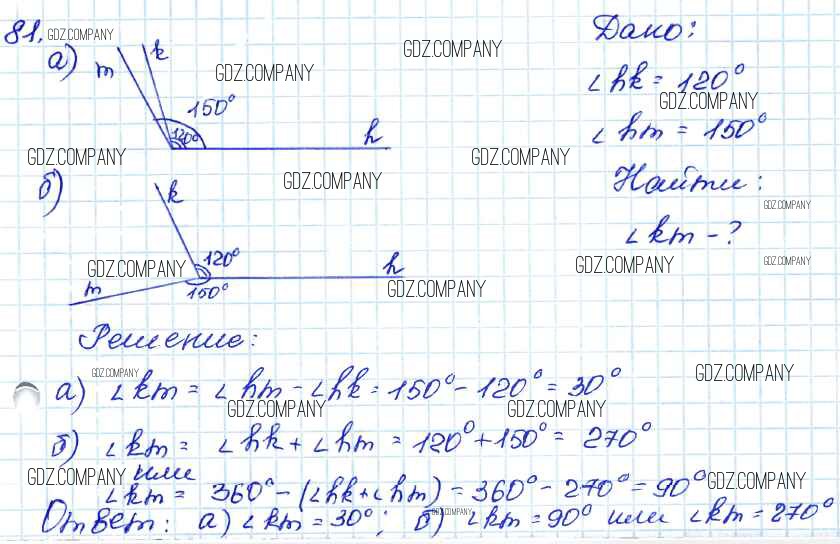 81. GDZ.COMPANY
а) m k 150° 120° h
GDZ.COMPANY
GDZ.COMPANY
Дано:
∠hk = 120°
GDZ.COMPANY
∠hm = 150°
GDZ.COMPANY
GDZ.COMPANY
GDZ.COMPANY
Найти:
GDZ.COMPANY
∠km - ?
б) k 120° h m 150°
GDZ.COMPANY
GDZ.COMPANY
GDZ.COMPANY
GDZ.COMPANY
Решение:
GDZ.COMPANY
GDZ.COMPANY
а) ∠km = ∠hm - ∠hk = 150° - 120° = 30°
GDZ.COMPANY
GDZ.COMPANY
б) ∠km = ∠hk + ∠hm = 120° + 150° = 270°
GDZ.COMPANY или
∠km = 360° - (∠hk + ∠hm) = 360° - 270° = 90° GDZ.COMPANY
Ответ: а) ∠km = 30°; б) GDZ.COMPANY ∠km = 90° или ∠km = 270°